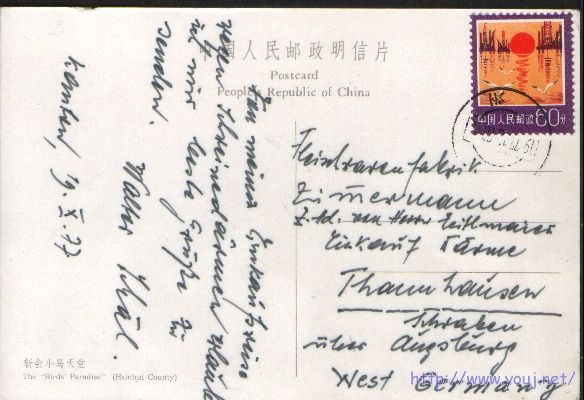 中国人民邮政明信片
Postcard
People's Republic of China
中国人民邮政 60分
19. XI. 77
Von meiner Einkaufsreise
wegen Schweinedärmen erlaube
ich mir beste Grüße zu
senden.
Walter
Fleischwarenfabrik
Zimmermann
z. Hd. von Herrn
Einkauf Därme
Thannhausen
Schwaben
über Augsburg
West Germany
新会小鸟天堂
The "Birds' Paradise" (Hsinhui County)
http://www.youj.net/